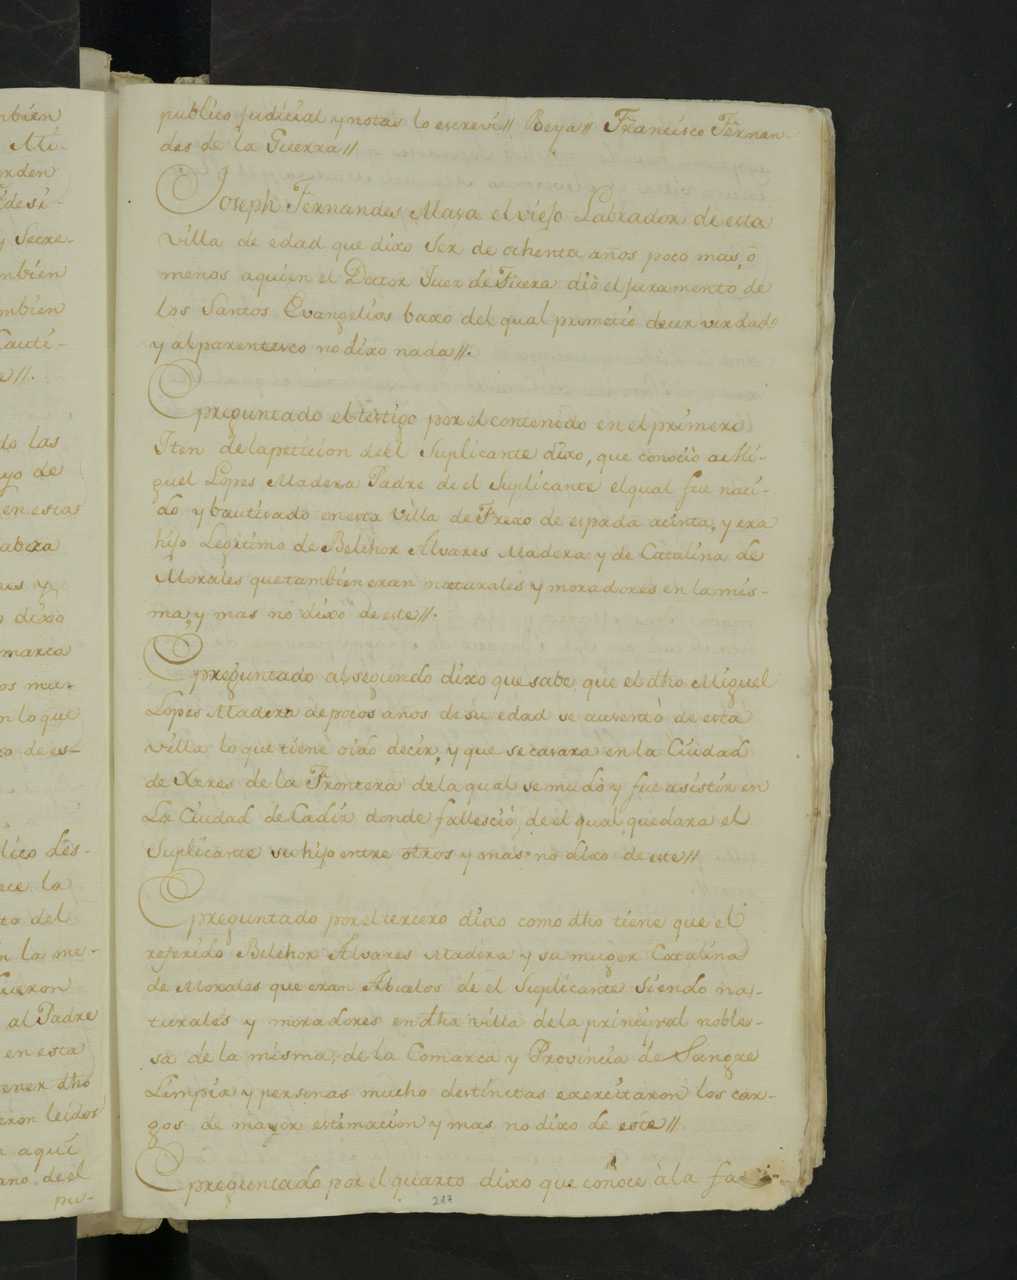 mbien
Mi-
orden
desi-
y Secre-
mbien
mbien
Cauti-
e//.
do las
yo de
en esta
abeza
es y
o dixo
marca
os mu-
n lo que
ca de es-
lico des-
ece la
to del
n la me-
fueron
al Padre
en esta
tener dho
eron leidos
a aqui
ano de el
pu-
publico judicial y notas lo escrevi// Beya// Francisco Fernan-
des de la Guerra//
Joseph Fernandes Masa el viejo Labrador de esta
villa de edad que dixo ser de ochenta años poco mas, o
menos aquien el Doctor Juez de Fuera diò el juramento de
los Santos Evangelios baxo del qual prometió decir verdad
y al parentesco no dixo nada//.
Epreguntado el testigo por el contenido en el primero
Iten de la peticion de el Suplicante dixo, que conociò a Mi-
guel Lopes Madera Padre de el Suplicante el qual fue naci-
do y bautizado en esta villa de Frexo de espada acinta, y era
hijo Legitimo de Belchor Alvares Madera y de Catalina de
Morales que tambien eran naturales y moradores en la mis-
ma, y mas no dixo de este//.
Epreguntado al segundo dixo que sabe que el dho Miguel
Lopes Madera de pocos años de su edad se ausentò de esta
villa lo que tiene oido decir, y que se casara en la Ciudad
de Xeres de la Frontera de la qual se mudò y fue asistir en
La Ciudad de Cadiz donde falleció, de el qual quedara el
Suplicante su hijo entre otros y mas no dixo de este//
Epreguntado por el tercero dixo como dho tiene que el
referido Belchor Alvares Madera y su muger Catalina
de Morales que eran Abuelos de el Suplicante siendo na-
turales y moradores en dha villa de la principal noble-
sa de la misma, de la Comarca y Provincia de Sangre
Limpia y personas mucho destinctas exercitaron los car-
gos de mayor estimacion y mas no dixo de este//
Epreguntado por el quarto dixo que conoce à la fa
217